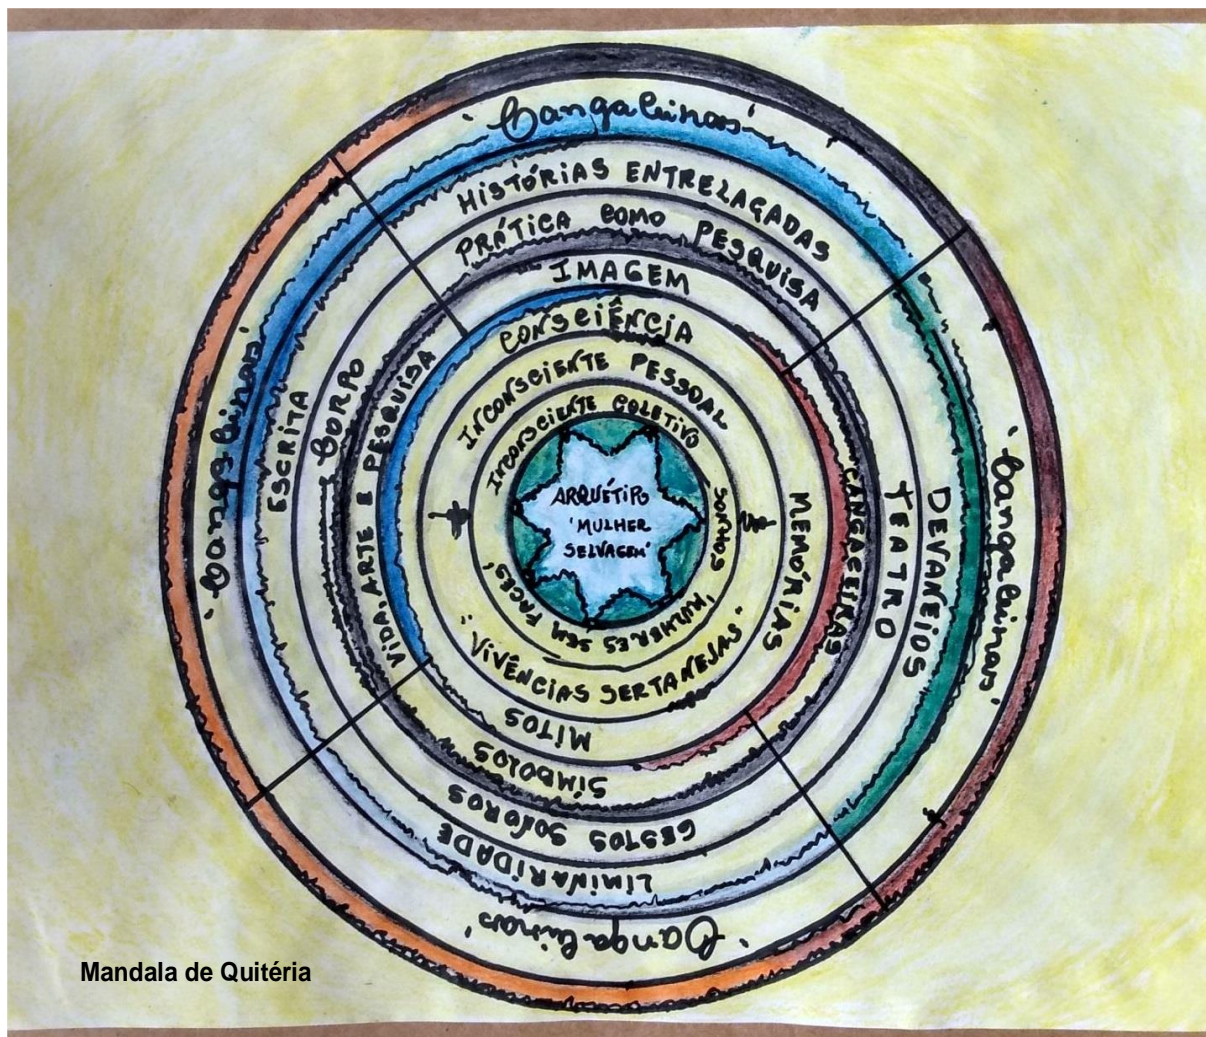 'Cangaceiras'
HISTÓRIAS ENTRELAÇADAS
PRÁTICA COMO PESQUISA
IMAGEM
CONSCIÊNCIA
INCONSCIENTE PESSOAL
INCONSCIENTE COLETIVO
ARQUÉTIPO
'MULHER
SELVAGEM'
SONHOS
'MULHERES SEM FACES'
VIVÊNCIAS SERTANEJAS
MEMÓRIAS
CANGACEIRAS
TEATRO
DEVANEIOS
'Cangaceiras'
MITOS
SÍMBOLOS
GESTOS SONOROS
LIMINARIDADE
'Cangaceiras'
VIDA, ARTE E PESQUISA
CORPO
ESCRITA
'Cangaceiras'
Mandala de Quitéria